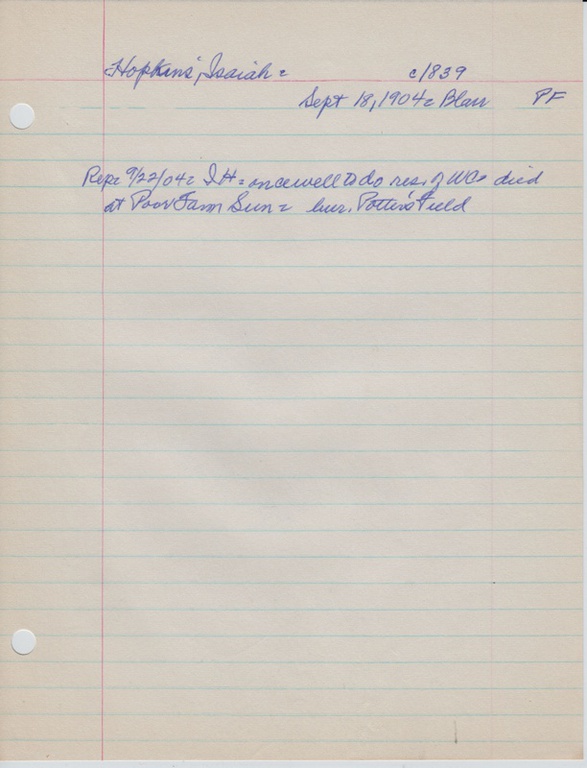 Hopkins, Isaiah = c/839
Sept 18, 1904 = Blair PF
Rep = 9/22/04 = I H = once well to do res. of WC = died
at Poor Farm Sun = bur. Potters Field